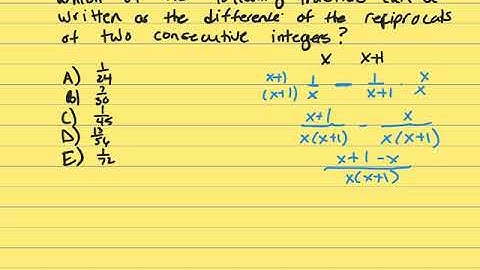 which of the following fractions can be
written as the difference of the reciprocals
of two consecutive integers?
x x+1
A) 1/24
B) 7/30
C) 1/45
D) 13/56
E) 1/72
(x+1)/(x+1) 1/x - 1/(x+1) · x/x
(x+1)/(x(x+1)) - x/(x(x+1))
(x+1-x)/(x(x+1))